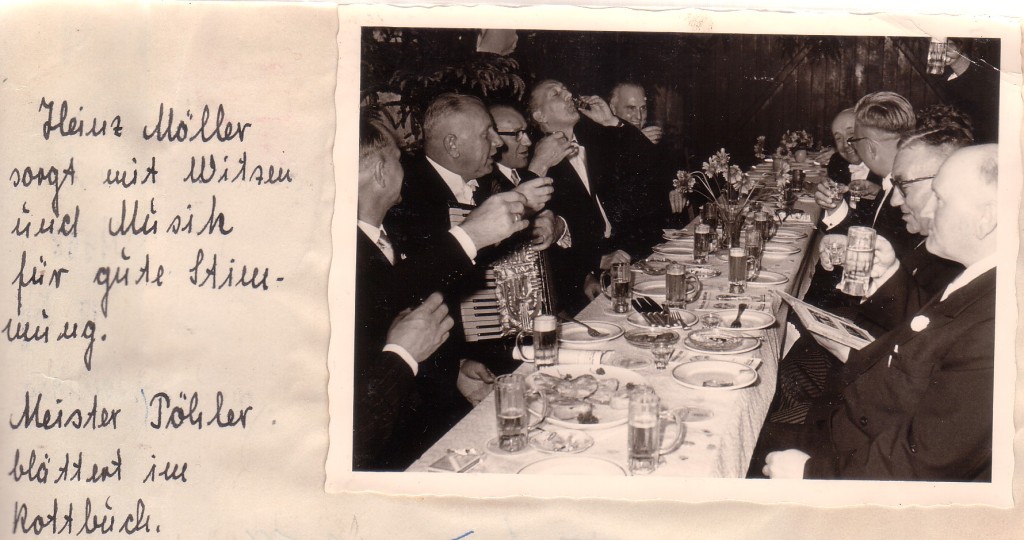 Heinz Möller
sorgt mit Witzen
und Musik
für gute Stim-
mung.
Meister Pöhler
blättert im
Rottbuch.